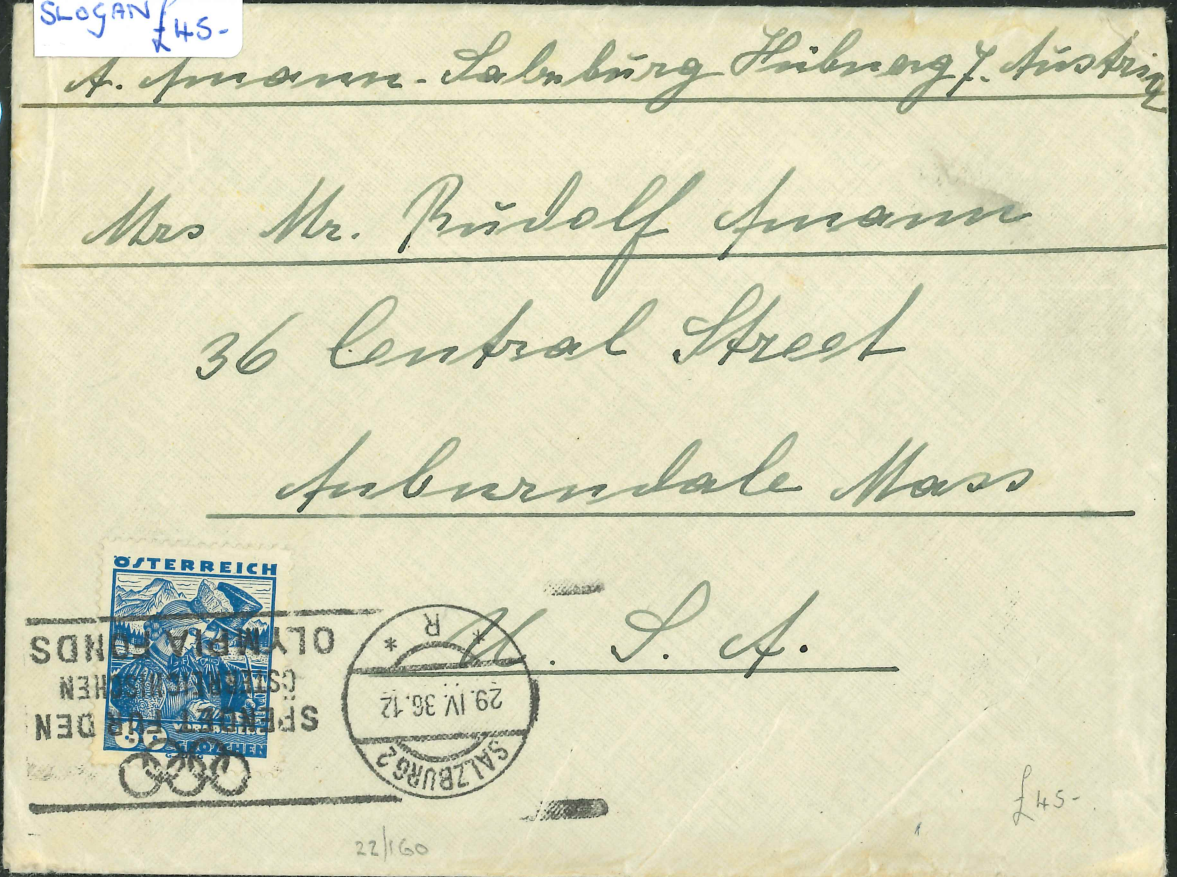 SLOGAN £45-
A. Amann - Salzburg Hübnerg 7. Austria
Mrs Mr. Rudolf Amann
36 Central Street
Auburndale Mass
U. S. A.
ÖSTERREICH
GROSCHEN
SPENDET FÜR DEN
ÖSTERREICHISCHEN
OLYMPIA FONDS
SALZBURG 2
29. IV. 36. 12
* R *
£45-
22/160